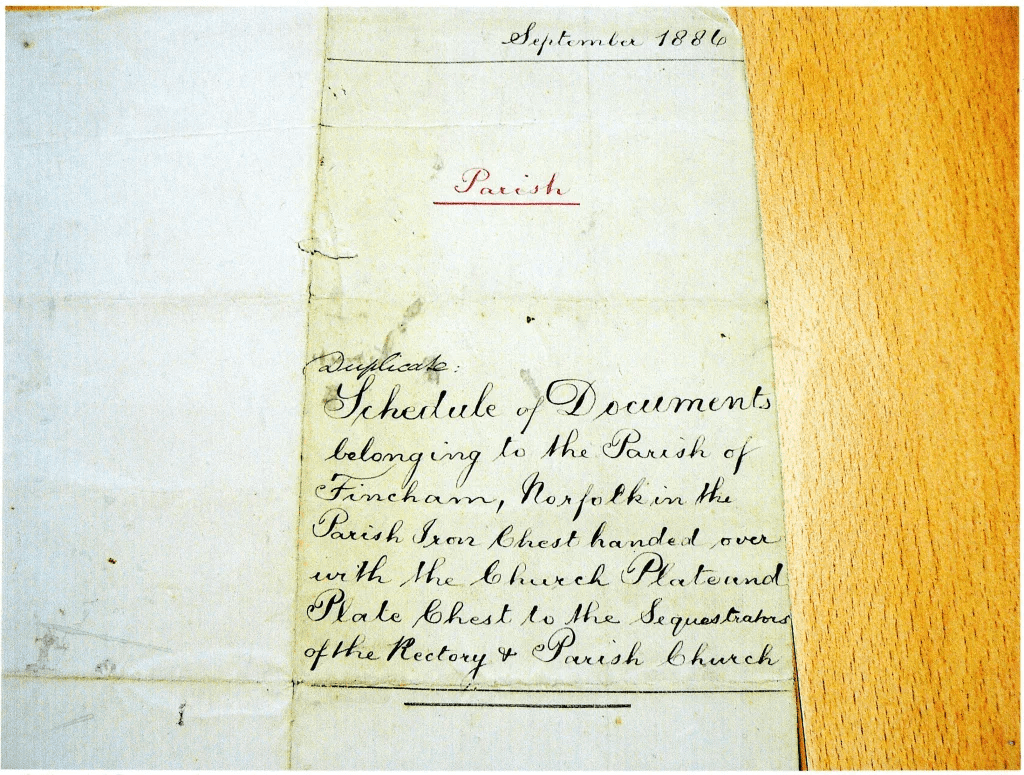 September 1886
Parish
Duplicate:
Schedule of Documents
belonging to the Parish of
Fincham, Norfolk in the
Parish Iron Chest handed over
with the Church Plate and
Plate Chest to the Sequestrators
of the Rectory & Parish Church